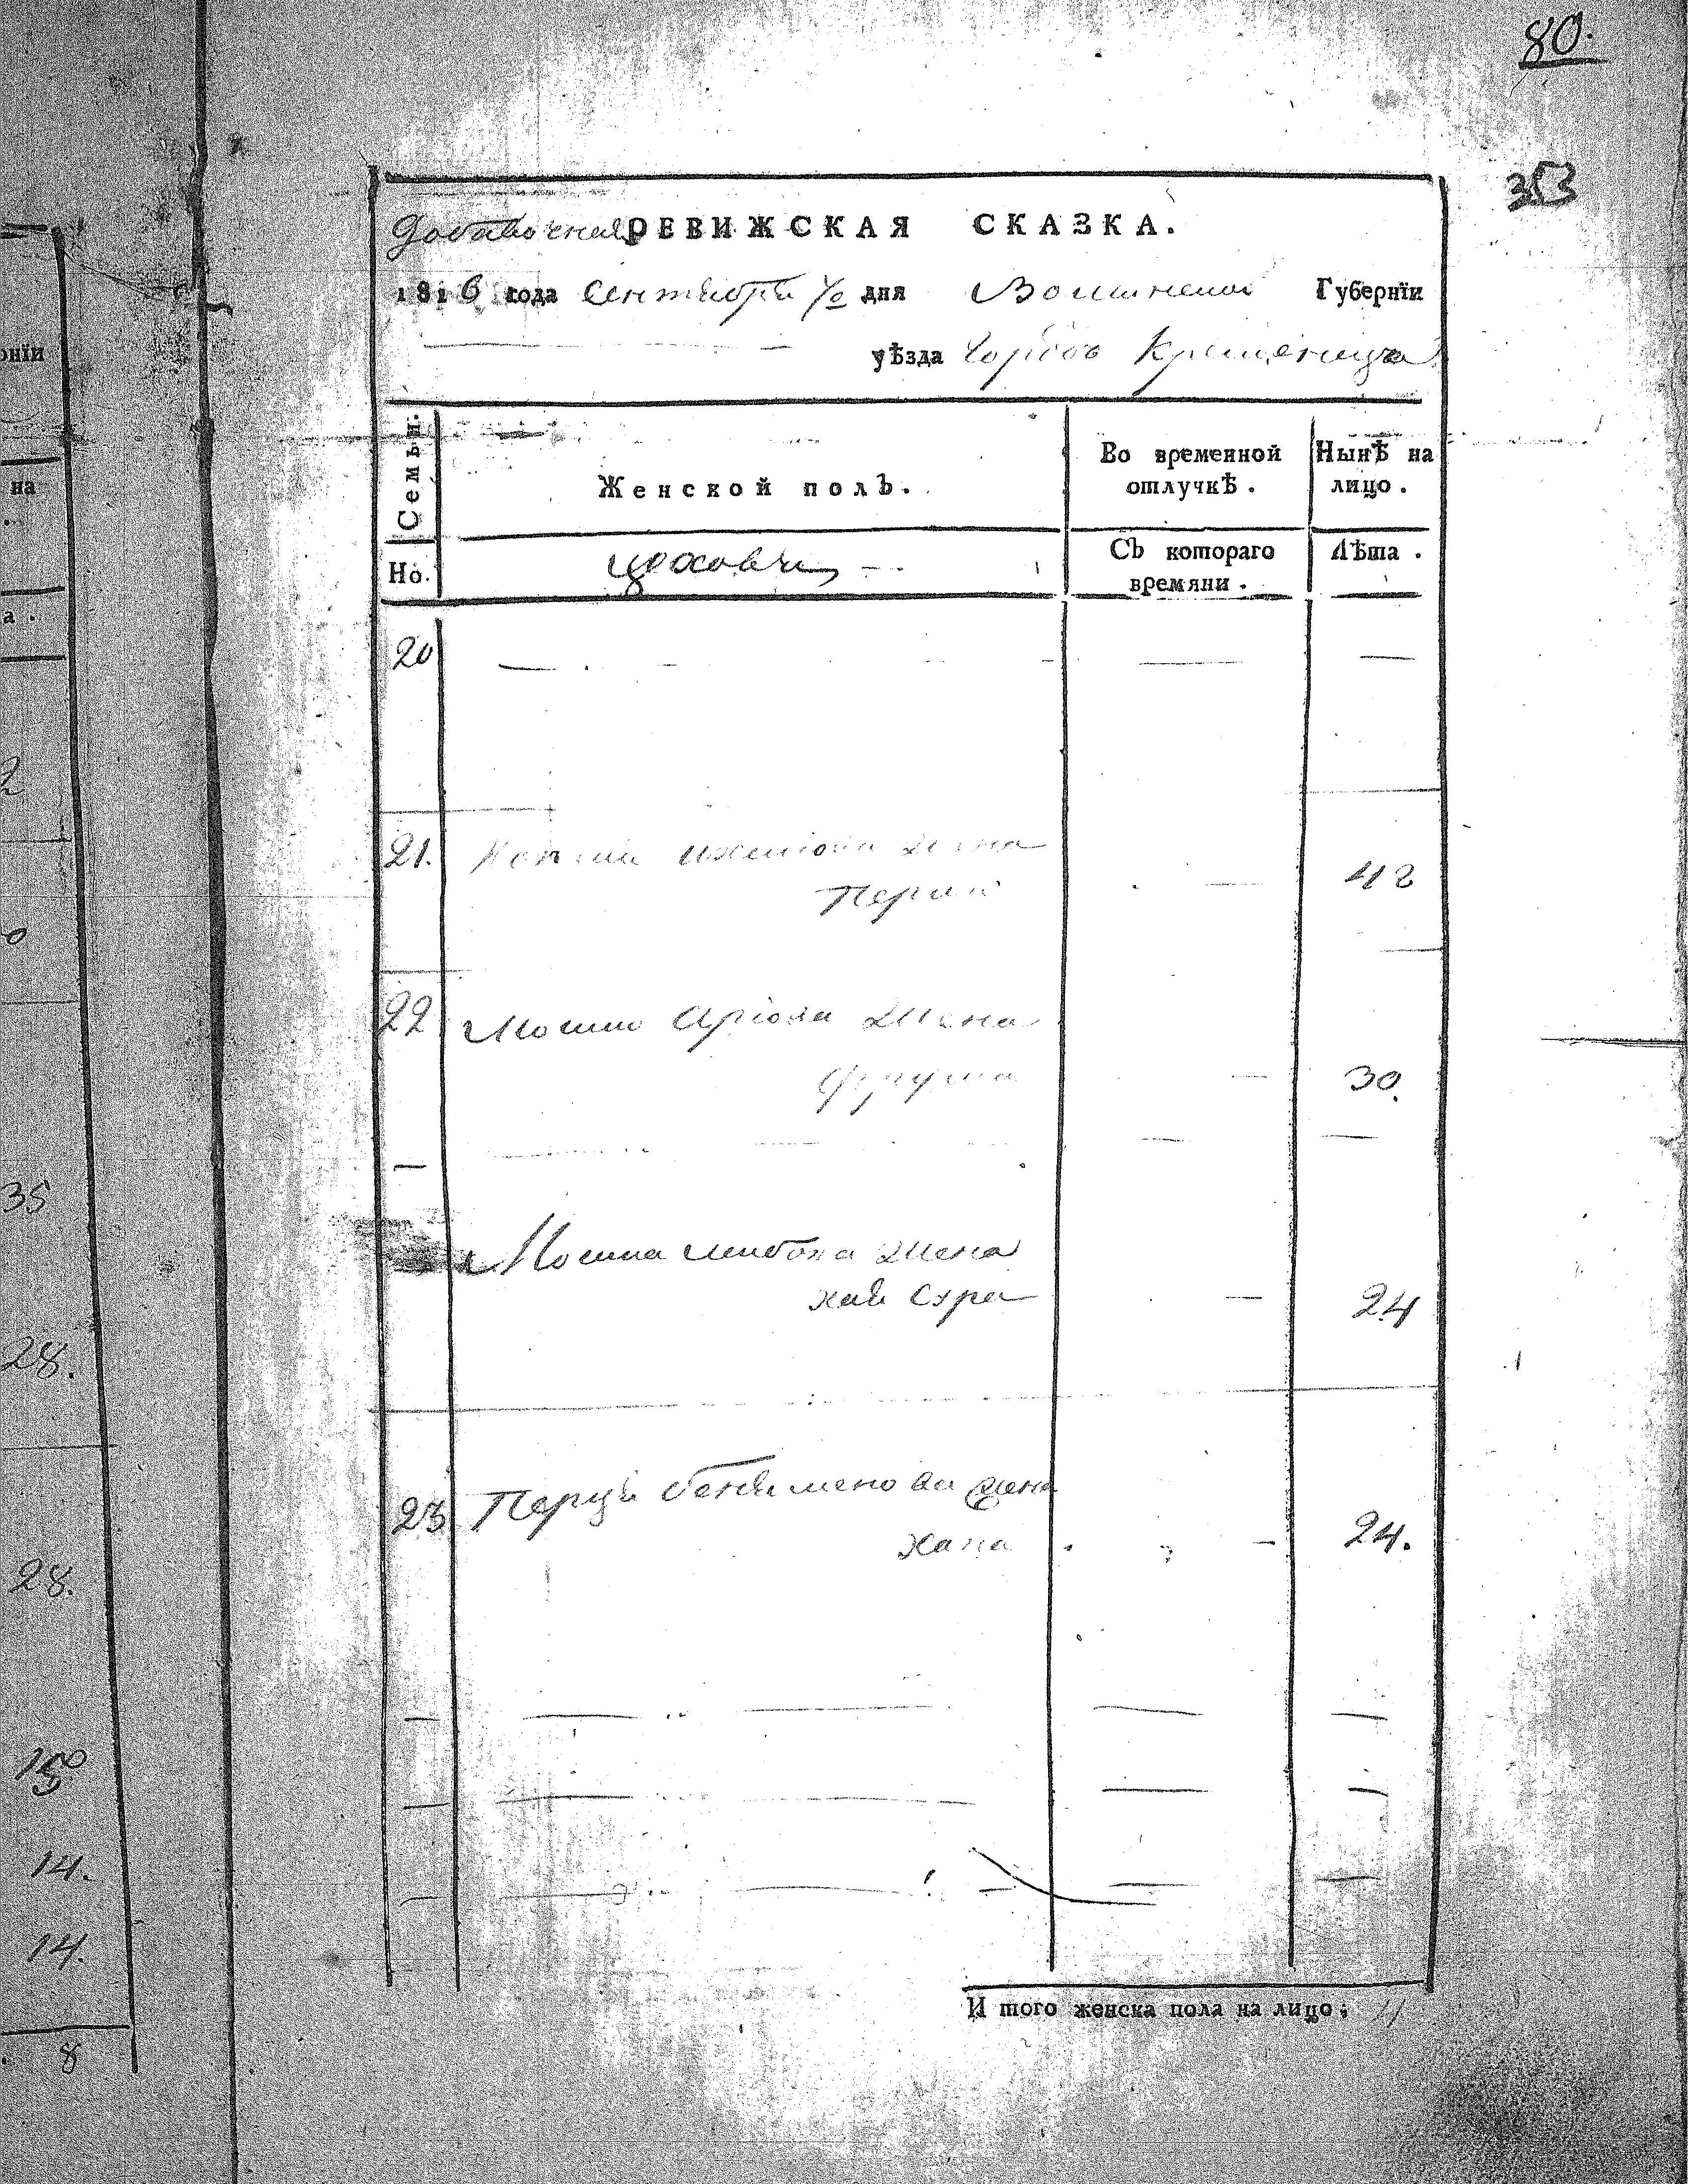 80.
353
Добавочная РЕВИЖСКАЯ СКАЗКА.
1816 года Сентября дня Волынской Губернїи
уѣзда города Кременца
Семьи.
Женской полъ.
Во временной отлучкѣ.
Нынѣ на лицо.
Но.
цеховые
Съ котораго времяни.
Лѣта.
20
21. жена
42
22 Мошка жена
Фрума
30.
Мошка Лейбова жена
хая Сура
24
23 Перца бениаминова жена
хана
24.
И того женска пола на лицо: 4
рнїи
на
а.
35
28.
28.
15
14.
14.
8